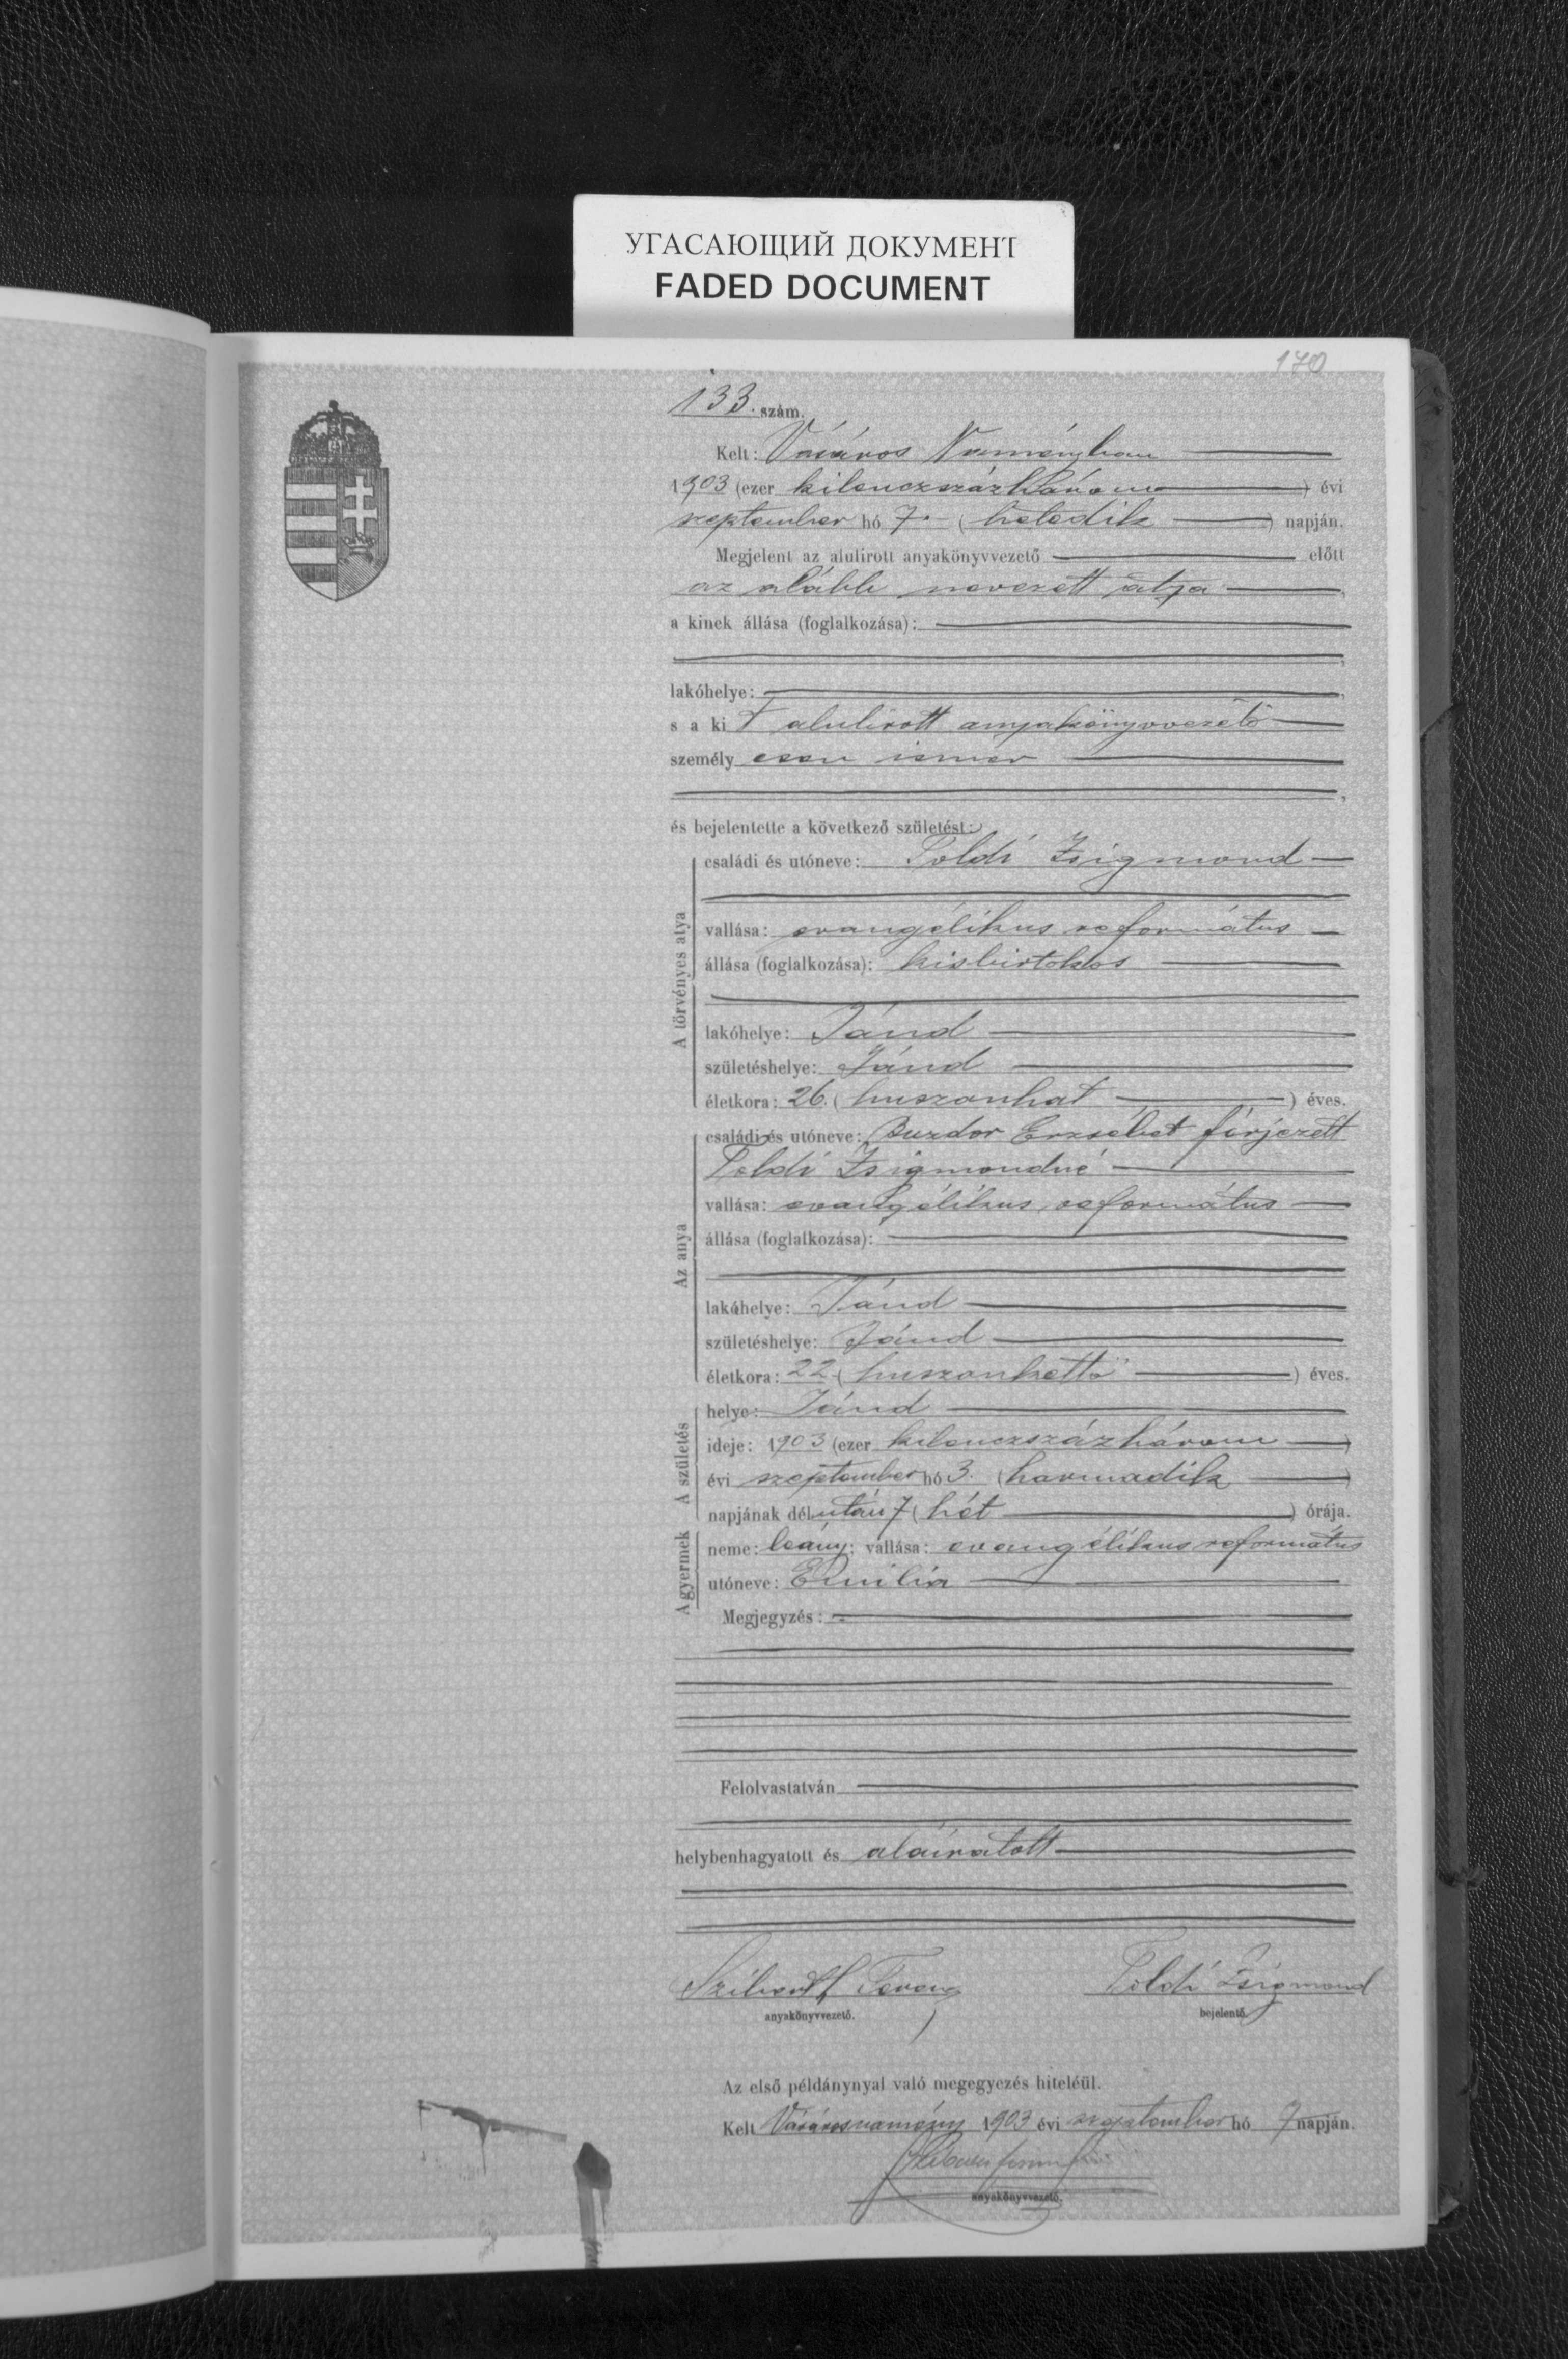 УГАСАЮЩИЙ ДОКУМЕНТ
FADED DOCUMENT
170
133. szám.
Kelt: Vásáros Naményban
1903 (ezer kilenczszázhárom) évi
szeptember hó 7. (hetedik) napján.
Megjelent az alulirott anyakönyvvezető előtt
az alább nevezett atya,
a kinek állása (foglalkozása):
lakóhelye:
s a kit alulirott anyakönyvvezető
személyesen ismer
és bejelentette a következő születést:
A törvényes atya
családi és utóneve: Toldi Zsigmond
vallása: evangélikus református
állása (foglalkozása): kisbirtokos
lakóhelye: Jánd
születéshelye: Jánd
életkora: 26. (huszonhat) éves.
Az anya
családi és utóneve: Erzsébet férjezett
Toldi Zsigmondné
vallása: evangélikus református
állása (foglalkozása):
lakóhelye: Jánd
születéshelye: Jánd
életkora: 22 (huszonkettő) éves.
A születés
helye: Jánd
ideje: 1903 (ezer kilenczszázhárom)
évi szeptember hó 3. (harmadik)
napjának délután 7 (hét) órája.
A gyermek
neme: leány; vallása: evangélikus református
utóneve: Emilia
Megjegyzés:
Felolvastatván
helybenhagyatott és aláiratott
Ferencz Toldi Zsigmond
anyakönyvvezető. bejelentő.
Az első példánynyal való megegyezés hiteléül.
Kelt Vásárosnamény 1903 évi szeptember hó 7 napján.
anyakönyvvezető.